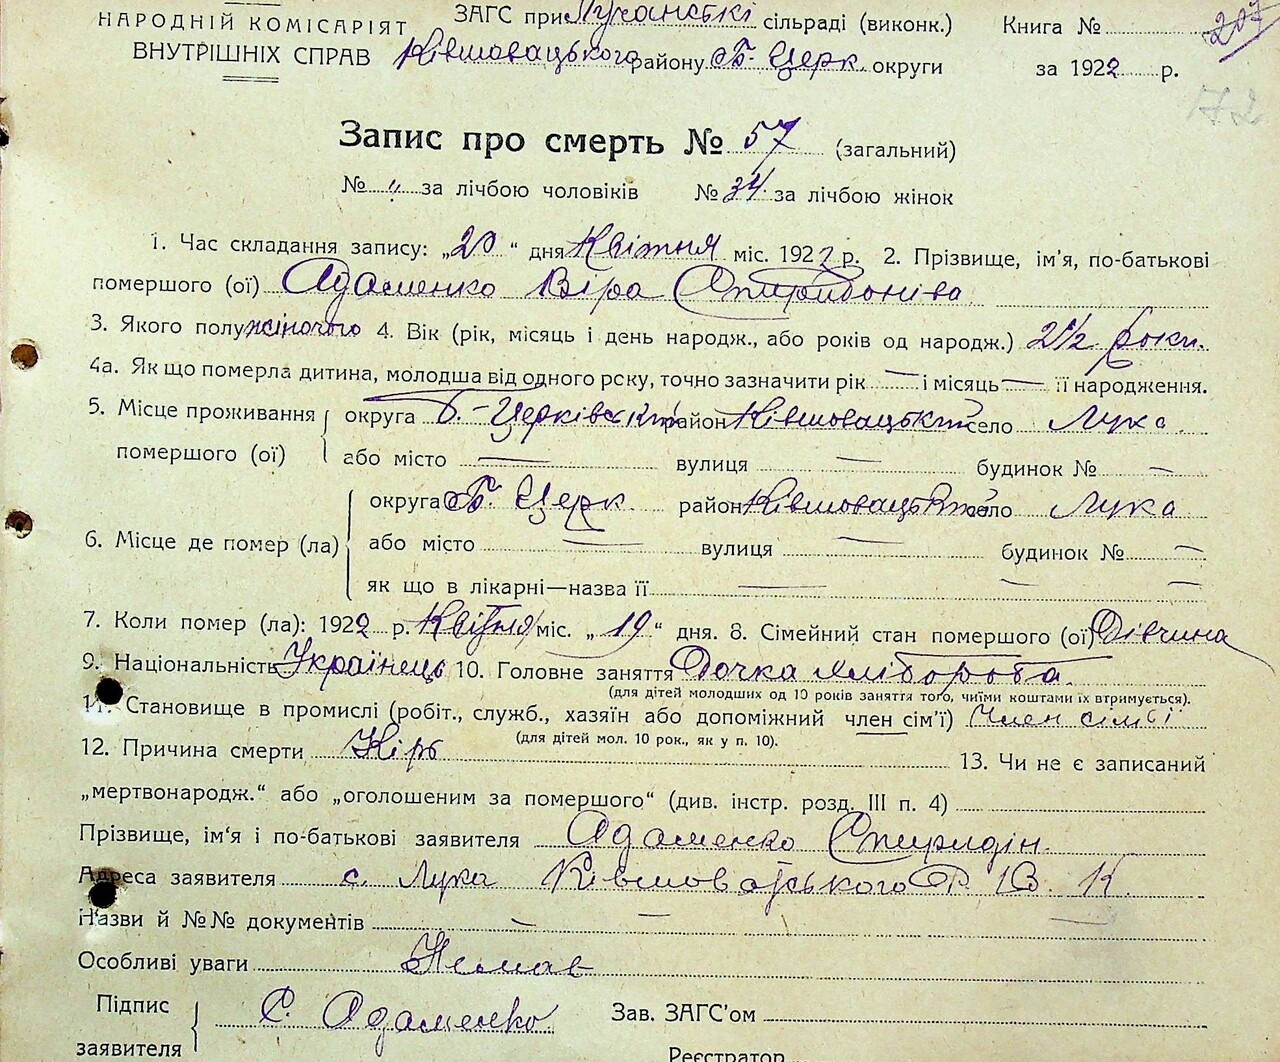 НАРОДНІЙ КОМІСАРІЯТ ВНУТРІШНІХ СПРАВ
ЗАГС при Луканські сільраді (виконк.) Книга № 207
Ківшовацького району Б. Церк. округи за 1922 р.
72
Запис про смерть № 57 (загальний)
№ " за лічбою чоловіків № 34 за лічбою жінок
1. Час складання запису: „20“ дня Квітня міс. 1922 р. 2. Прізвище, ім'я, по-батькові
помершого (ої) Адаменко Віра Спиридонівна
3. Якого полу жіночого 4. Вік (рік, місяць і день народж., або років од народж.) 2 1/2 роки.
4а. Як що померла дитина, молодша від одного року, точно зазначити рік — і місяць — її народження.
5. Місце проживання помершого (ої) округа Б.-Церківський район Ківшовацький село Лука
або місто — вулиця — будинок № —
6. Місце де помер (ла) округа Б. Церк район Ківшовацький село Лука
або місто — вулиця — будинок № —
як що в лікарні—назва її — — —
7. Коли помер (ла): 1922 р. Квітня міс. „19“ дня. 8. Сімейний стан помершого (ої) Дівчина
9. Національність Українець 10. Головне заняття Дочка хлібороба.
(для дітей молодших од 10 років заняття того, чиїми коштами їх втримується).
11. Становище в промислі (робіт., служб., хазяїн або допоміжний член сім'ї) Член сімї
(для дітей мол. 10 рок., як у п. 10).
12. Причина смерти Кір 13. Чи не є записаний
„мертвонародж.“ або „оголошеним за помершого“ (див. інстр. розд. III п. 4)
Прізвище, ім'я і по-батькові заявителя Адаменко Спиридін.
Адреса заявителя с. Лука Ківшоватського Р. В. К.
Назви й №№ документів — — —
Особливі уваги Немає
Підпис заявителя С. Адаменко Зав. ЗАГС'ом
Реєстратор